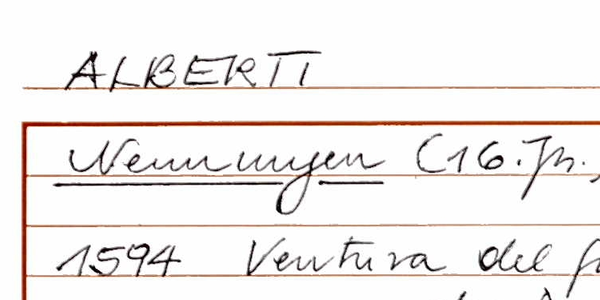 ALBERTI
Nennungen (16. Jh.,
1594 Ventura del